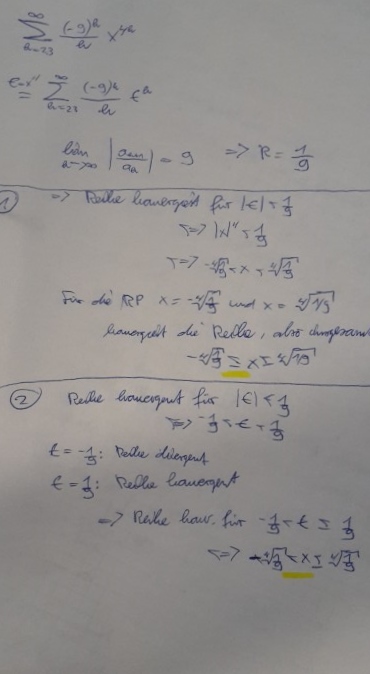 ∑_{k=23}^{∞} (-9)^k / k x^{4k}
t=x^4 = ∑_{k=23}^{∞} (-9)^k / k t^k
lim_{k→∞} |a_{k+1}/a_k| = 9 => R = 1/9
① => Reihe konvergiert für |t| < 1/9
<=> |x|^4 < 1/9
<=> -⁴√(1/9) < x < ⁴√(1/9)
Für die RP x = -⁴√(1/9) und x = ⁴√(1/9)
konvergiert die Reihe, also insgesamt
-⁴√(1/9) ≤ x ≤ ⁴√(1/9)
② Reihe konvergent für |t| < 1/9
<=> -1/9 < t < 1/9
t = -1/9: Reihe divergent
t = 1/9: Reihe konvergent
=> Reihe konv. für -1/9 < t ≤ 1/9
<=> -⁴√(1/9) < x ≤ ⁴√(1/9)